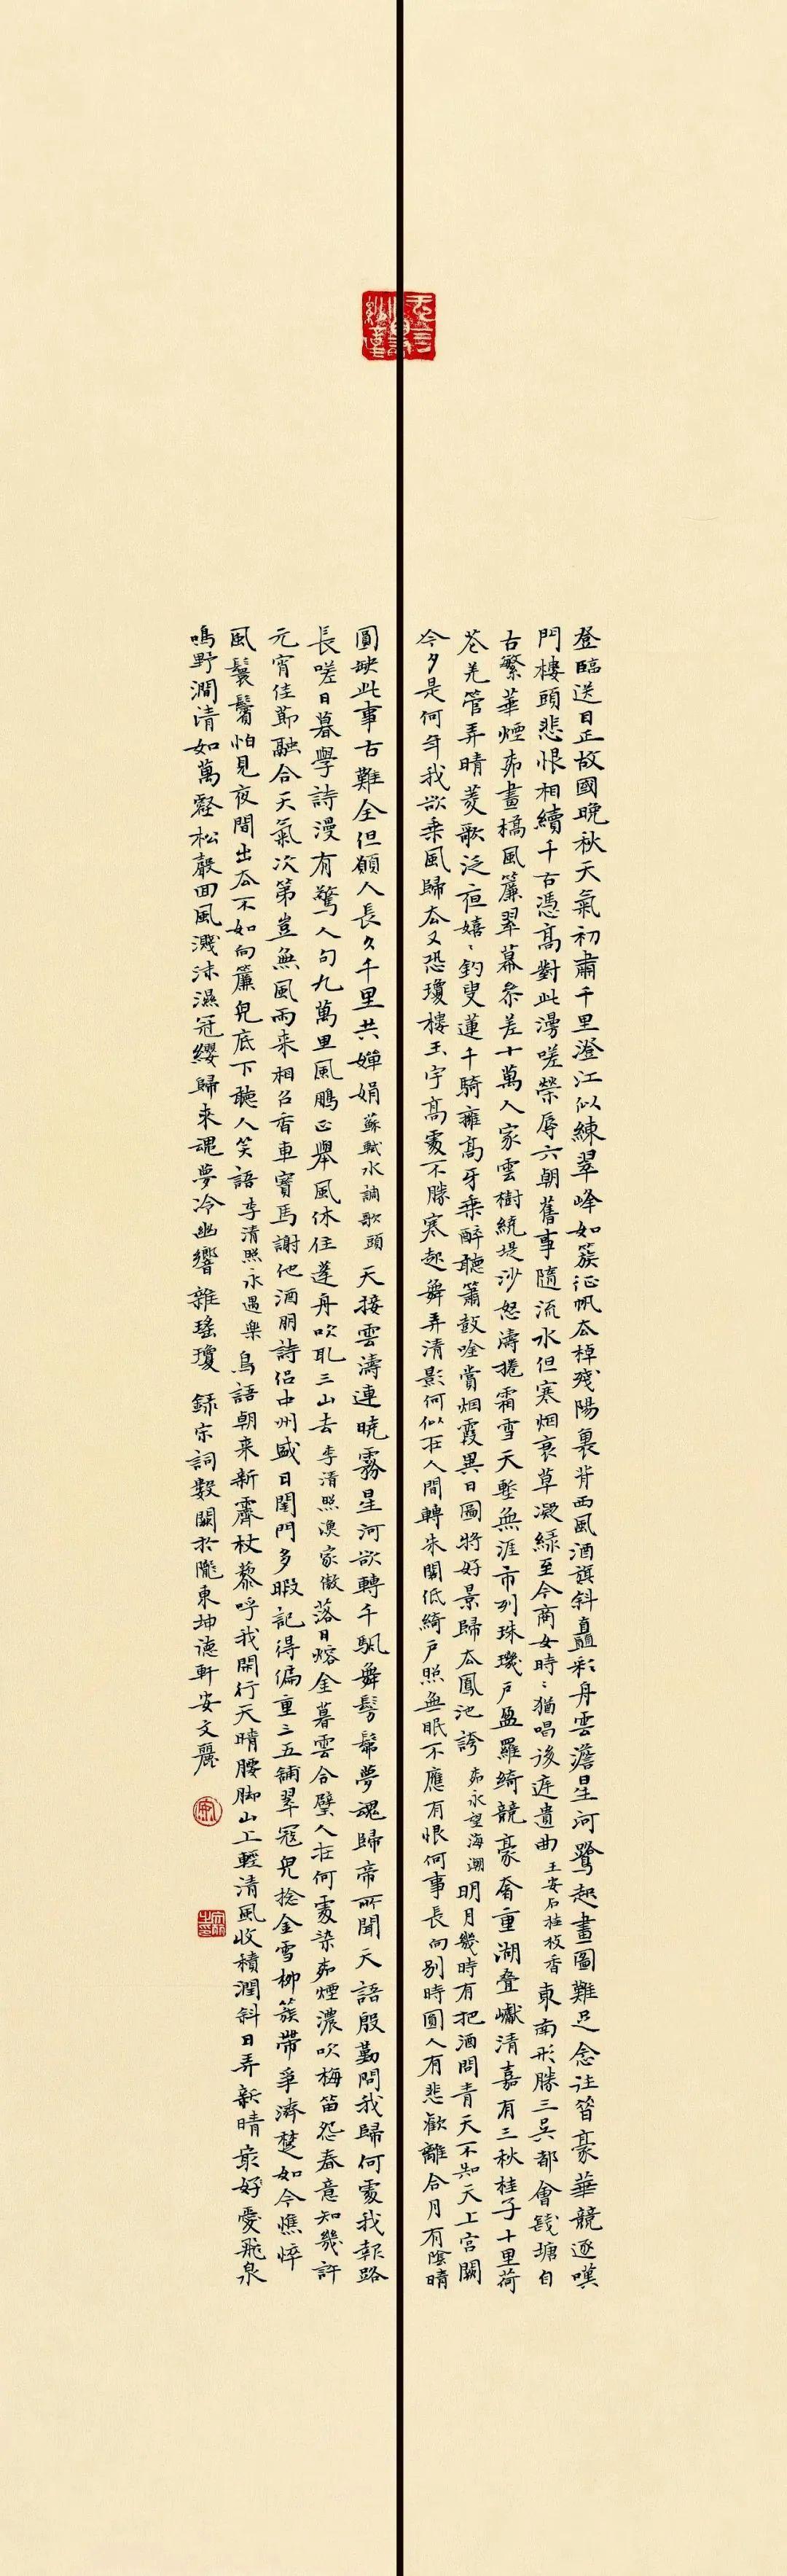 登臨送目正故國晚秋天氣初肅千里澄江似練翠峰如簇征帆去棹殘陽裏背西風酒旗斜矗彩舟雲澹星河鷺起畫圖難足念往昔豪華競逐嘆
門樓頭悲恨相續千古憑高對此漫嗟榮辱六朝舊事隨流水但寒烟衰草凝綠至今商女時〻猶唱後庭遺曲王安石桂枝香東南形勝三吳都會錢塘自
古繁華煙柳畫橋風簾翠幕參差十萬人家雲樹繞堤沙怒濤捲霜雪天塹無涯市列珠璣戶盈羅綺競豪奢重湖疊巘清嘉有三秋桂子十里荷
花羌管弄晴菱歌泛夜嬉〻釣叟蓮千騎擁高牙乘醉聽簫鼓吟賞烟霞異日圖將好景歸去鳳池誇柳永望海潮明月幾時有把酒問青天不知天上宮闕
今夕是何年我欲乘風歸去又恐瓊樓玉宇高處不勝寒起舞弄清影何似在人間轉朱閣低綺戶照無眠不應有恨何事長向別時圓人有悲歡離合月有陰晴
圓缺此事古難全但願人長久千里共嬋娟蘇軾水調歌頭天接雲濤連曉霧星河欲轉千帆舞髣髴夢魂歸帝所聞天語殷勤問我歸何處我報路
長嗟日暮學詩漫有驚人句九萬里風鵬正舉風休住蓬舟吹取三山去李清照漁家傲落日熔金暮雲合璧人在何處染柳煙濃吹梅笛怨春意知幾許
元宵佳節融合天氣次第豈無風雨来相召香車寶馬謝他酒朋詩侶中州盛日閨門多暇記得偏重三五鋪翠冠兒捻金雪柳簇帶爭濟楚如今憔悴
風鬟鬢霜怕見夜間出去不如向簾兒底下聽人笑語李清照永遇樂鳥語朝来新霽杖藜呼我閑行天晴腰脚山上輕清風收積潤斜日弄新晴最好愛飛泉
鳴野澗清如萬壑松聲回風濺沫濕冠纓歸來魂夢冷幽響雜瑤瓊 録宋詞數闋於隴東坤德軒安文麗